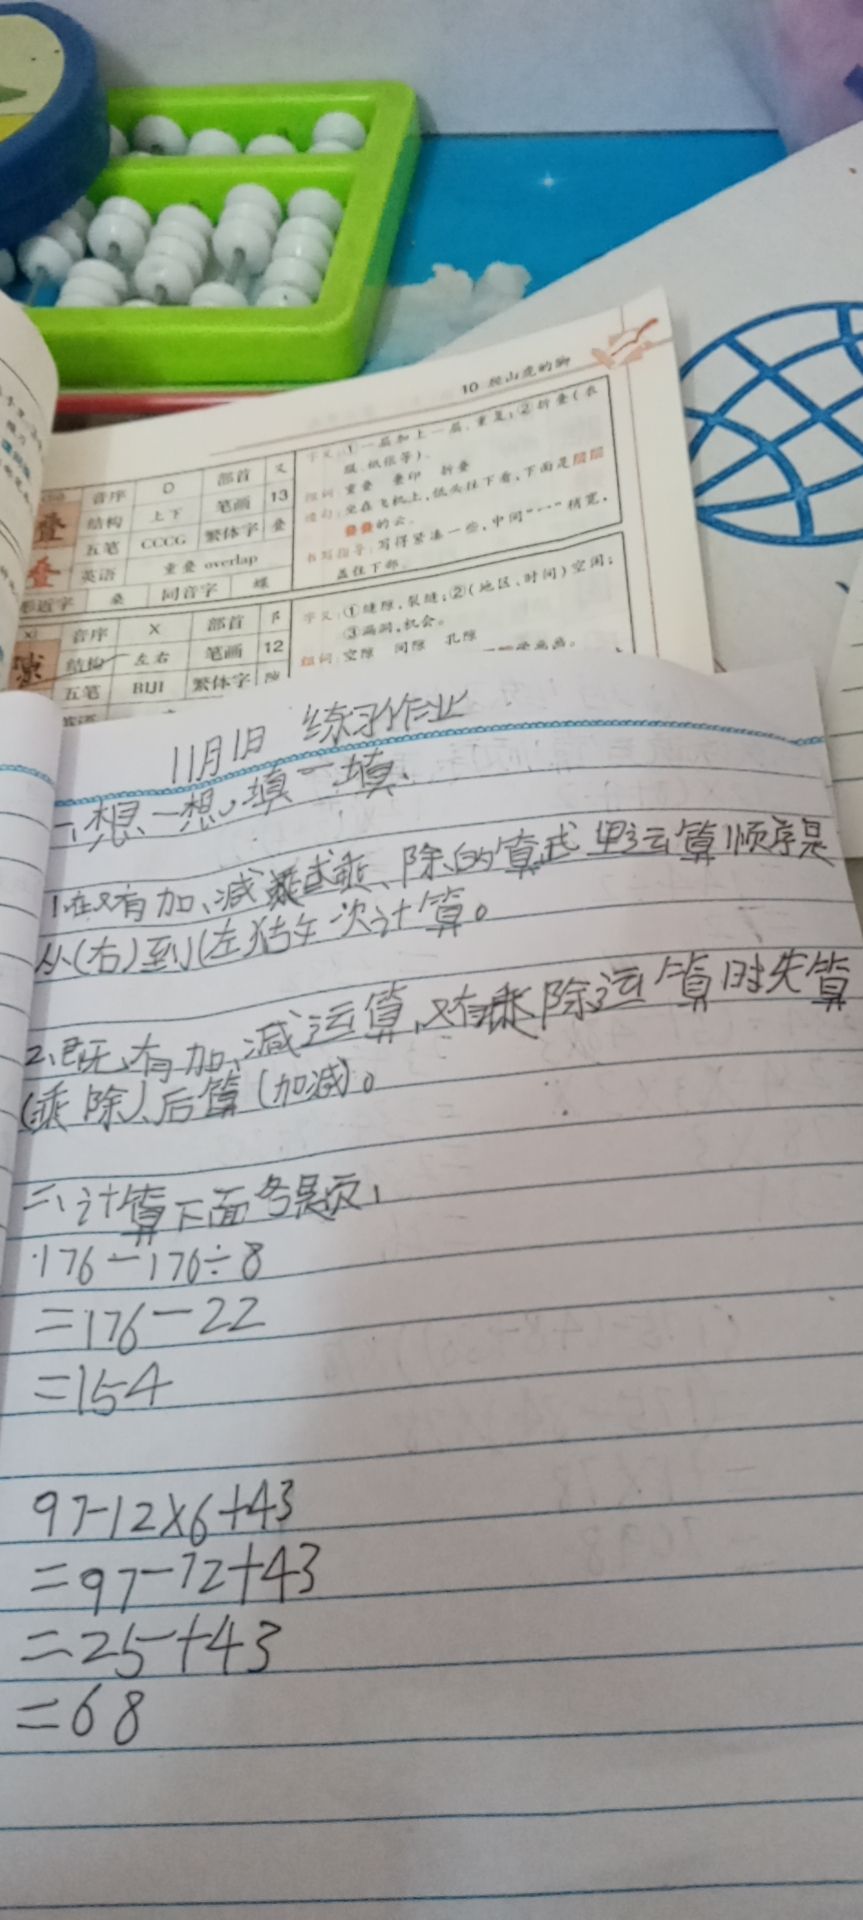 10 爬山虎的脚
音序 D 部首 又
结构 上下 笔画 13
五笔 CCCG 繁体字 叠
英语 重叠 overlap
形近字 桑 同音字 蝶
字义:①一层加上一层,重复;②折叠(衣
服、纸张等)。
组词:重叠 叠印 折叠
造句:坐在飞机上,低头往下看,下面是层层
叠叠的云。
书写指导:写得紧凑一些,中间“冖”稍宽,
盖住下部。
xì 音序 X 部首 阝
隙 结构 左右 笔画 12
五笔 BIJI 繁体字 隙
字义:①缝隙,裂缝;②(地区、时间)空闲;
③漏洞,机会。
组词:空隙 间隙 孔隙
11月1日 练习作业
一、想一想,填一填。
1.在只有加、减或乘、除的算式里,运算顺序是
从(右)到(左)依次计算。
2、既有加、减运算,又有乘除运算时先算
(乘除)、后算(加减)。
二、计算下面各题,
176-176÷8
=176-22
=154
97-12×6+43
=97-72+43
=25+43
=68